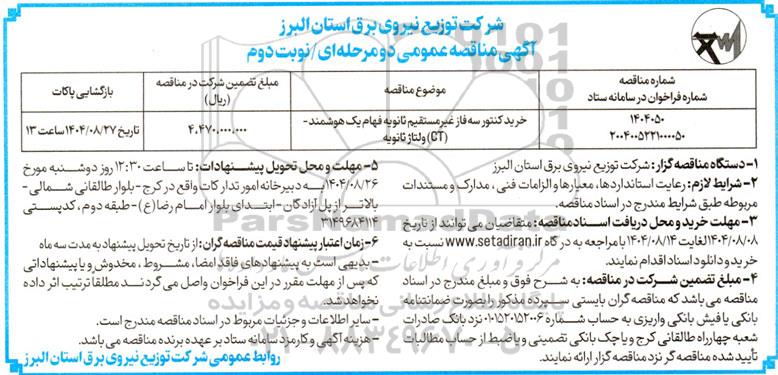 شرکت توزیع نیروی برق استان البرز
آگهی مناقصه عمومی دو مرحله‌ای/ نوبت دوم
شماره مناقصه
شماره فراخوان در سامانه ستاد
موضوع مناقصه
مبلغ تضمین شرکت در مناقصه (ریال)
بازگشایی پاکات
۱۴۰۴۰۵۰
۲۰۰۴۰۰۵۲۲۱۰۰۰۰۵۰
خرید کنتور سه فاز غیرمستقیم ثانویه فهام یک هوشمند-
(CT) ولتاژ ثانویه
۴.۴۷۰.۰۰۰.۰۰۰
تاریخ ۱۴۰۴/۰۸/۲۷ ساعت ۱۳
۱- دستگاه مناقصه گزار: شرکت توزیع نیروی برق استان البرز
۲- شرایط لازم: رعایت استانداردها، معیارها و الزامات فنی ، مدارک و مستندات
مربوطه طبق شرایط مندرج در اسناد مناقصه.
۳- مهلت خرید و محل دریافت اسناد مناقصه: متقاضیان می توانند از تاریخ
۱۴۰۴/۰۸/۰۸ لغایت ۱۴۰۴/۰۸/۱۴ با مراجعه به درگاه www.setadiran.ir نسبت به
خرید و دانلود اسناد اقدام نمایند.
۴- مبلغ تضمین شرکت در مناقصه: به شرح فوق و مبلغ مندرج در اسناد
مناقصه می باشد که مناقصه گران بایستی سپرده مذکور را بصورت ضمانتنامه
بانکی یا فیش بانکی واریزی به حساب شماره ۰۱۰۵۲۰۱۵۲۰۰۶ نزد بانک صادرات
شعبه چهارراه طالقانی کرج و یا چک بانکی تضمینی و یا ضبط از حساب مطالبات
تأیید شده مناقصه گر نزد مناقصه گزار ارائه نمایند.
۵- مهلت و محل تحویل پیشنهادات: تا ساعت ۱۲:۳۰ روز دوشنبه مورخ
۱۴۰۴/۰۸/۲۶ به دبیرخانه امور تدارکات واقع در کرج - بلوار طالقانی شمالی-
بالاتر از پل آزادگان - ابتدای بلوار امام رضا (ع) - طبقه دوم ، کدپستی
۳۱۴۹۶۸۴۱۱۴
۶- زمان اعتبار پیشنهاد قیمت مناقصه گران: از تاریخ تحویل پیشنهاد به مدت سه ماه
- بدیهی است به پیشنهادهای فاقد امضا، مشروط ، مخدوش و یا پیشنهاداتی
که پس از مهلت مقرر در این فراخوان واصل می گردند مطلقا ترتیب اثر داده
نخواهد شد.
- سایر اطلاعات و جزئیات مربوط در اسناد مناقصه مندرج است.
- هزینه آگهی و کارمزد سامانه ستاد بر عهده برنده مناقصه می باشد.
روابط عمومی شرکت توزیع نیروی برق استان البرز